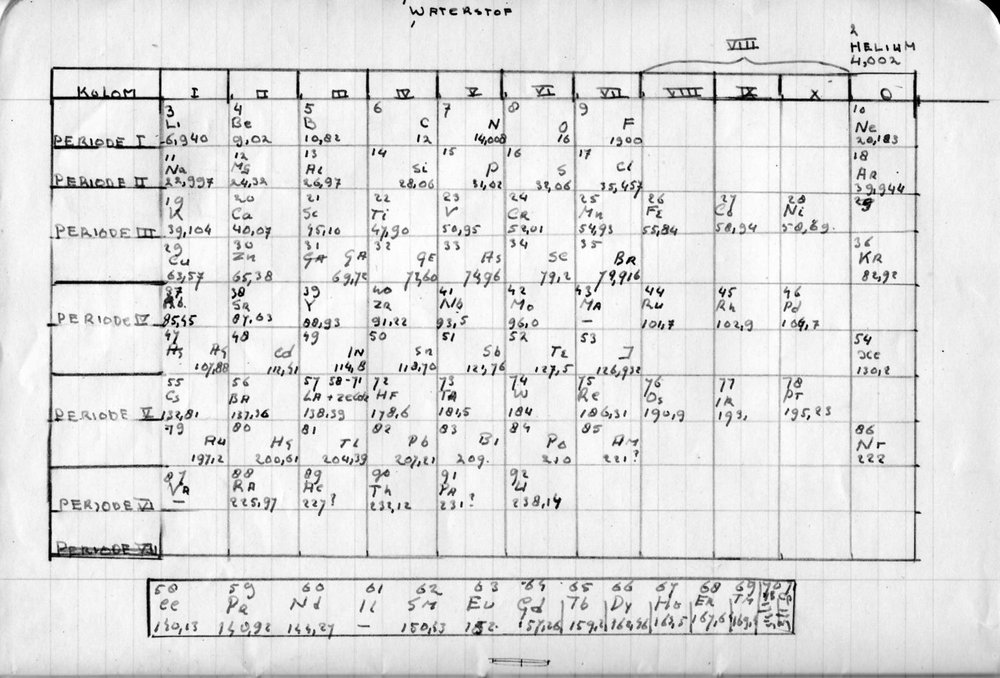 WATERSTOF
2
HELIUM
4,002
VIII
KOLOM I II III IV V VI VII VIII IX X O
3 4 5 6 7 8 9 10
Li Be B C N O F Ne
PERIODE I 6,940 9,02 10,82 12 14,008 16 1900 20,183
11 12 13 14 15 16 17 18
Na Mg Al Si P S Cl AR
PERIODE II 22,997 24,32 26,97 28,06 31,02 32,06 35,457 39,944
19 20 21 22 23 24 25 26 27 28
K Ca Sc Ti V CR Mn FE Co Ni
PERIODE III 39,104 40,07 45,10 47,90 50,95 52,01 54,93 55,84 58,94 58,69
29 30 31 32 33 34 35 36
Cu Zn GA GA GE As SE BR KR
63,57 65,38 69,72 72,60 74,96 79,2 79,916 82,92
37 38 39 40 41 42 43 44 45 46
Rb SR Y ZR Nb Mo MA Ru Rh Pd
PERIODE IV 85,45 87,63 88,93 91,22 93,5 96,0 – 101,7 102,9 106,7
47 48 49 50 51 52 53 54
Ag Ag Cd IN Sn Sb TE J XE
107,88 112,41 114,8 118,70 121,76 127,5 126,932 130,2
55 56 57 58-71 72 73 74 75 76 77 78
Cs BA LA HF TA W RE Os IR PT
PERIODE V 132,81 137,36 138,39 178,6 181,5 184 186,31 190,9 193, 195,23
79 80 81 82 83 84 85 86
Au Hg TL Pb BI Po AM NT
197,2 200,61 204,39 207,21 209. 210 221? 222
87 88 89 90 91 92
VA RA AC Th PA U
PERIODE VI – 225,97 227? 232,12 231? 238,14
PERIODE VII
58 59 60 61 62 63 64 65 66 67 68 69 70
CE PR Nd IL SM Eu Gd Tb Dy Ho ER TM
140,13 140,92 144,27 – 150,43 152. 157,26 159,2 162,46 163,5 167,64 169,4